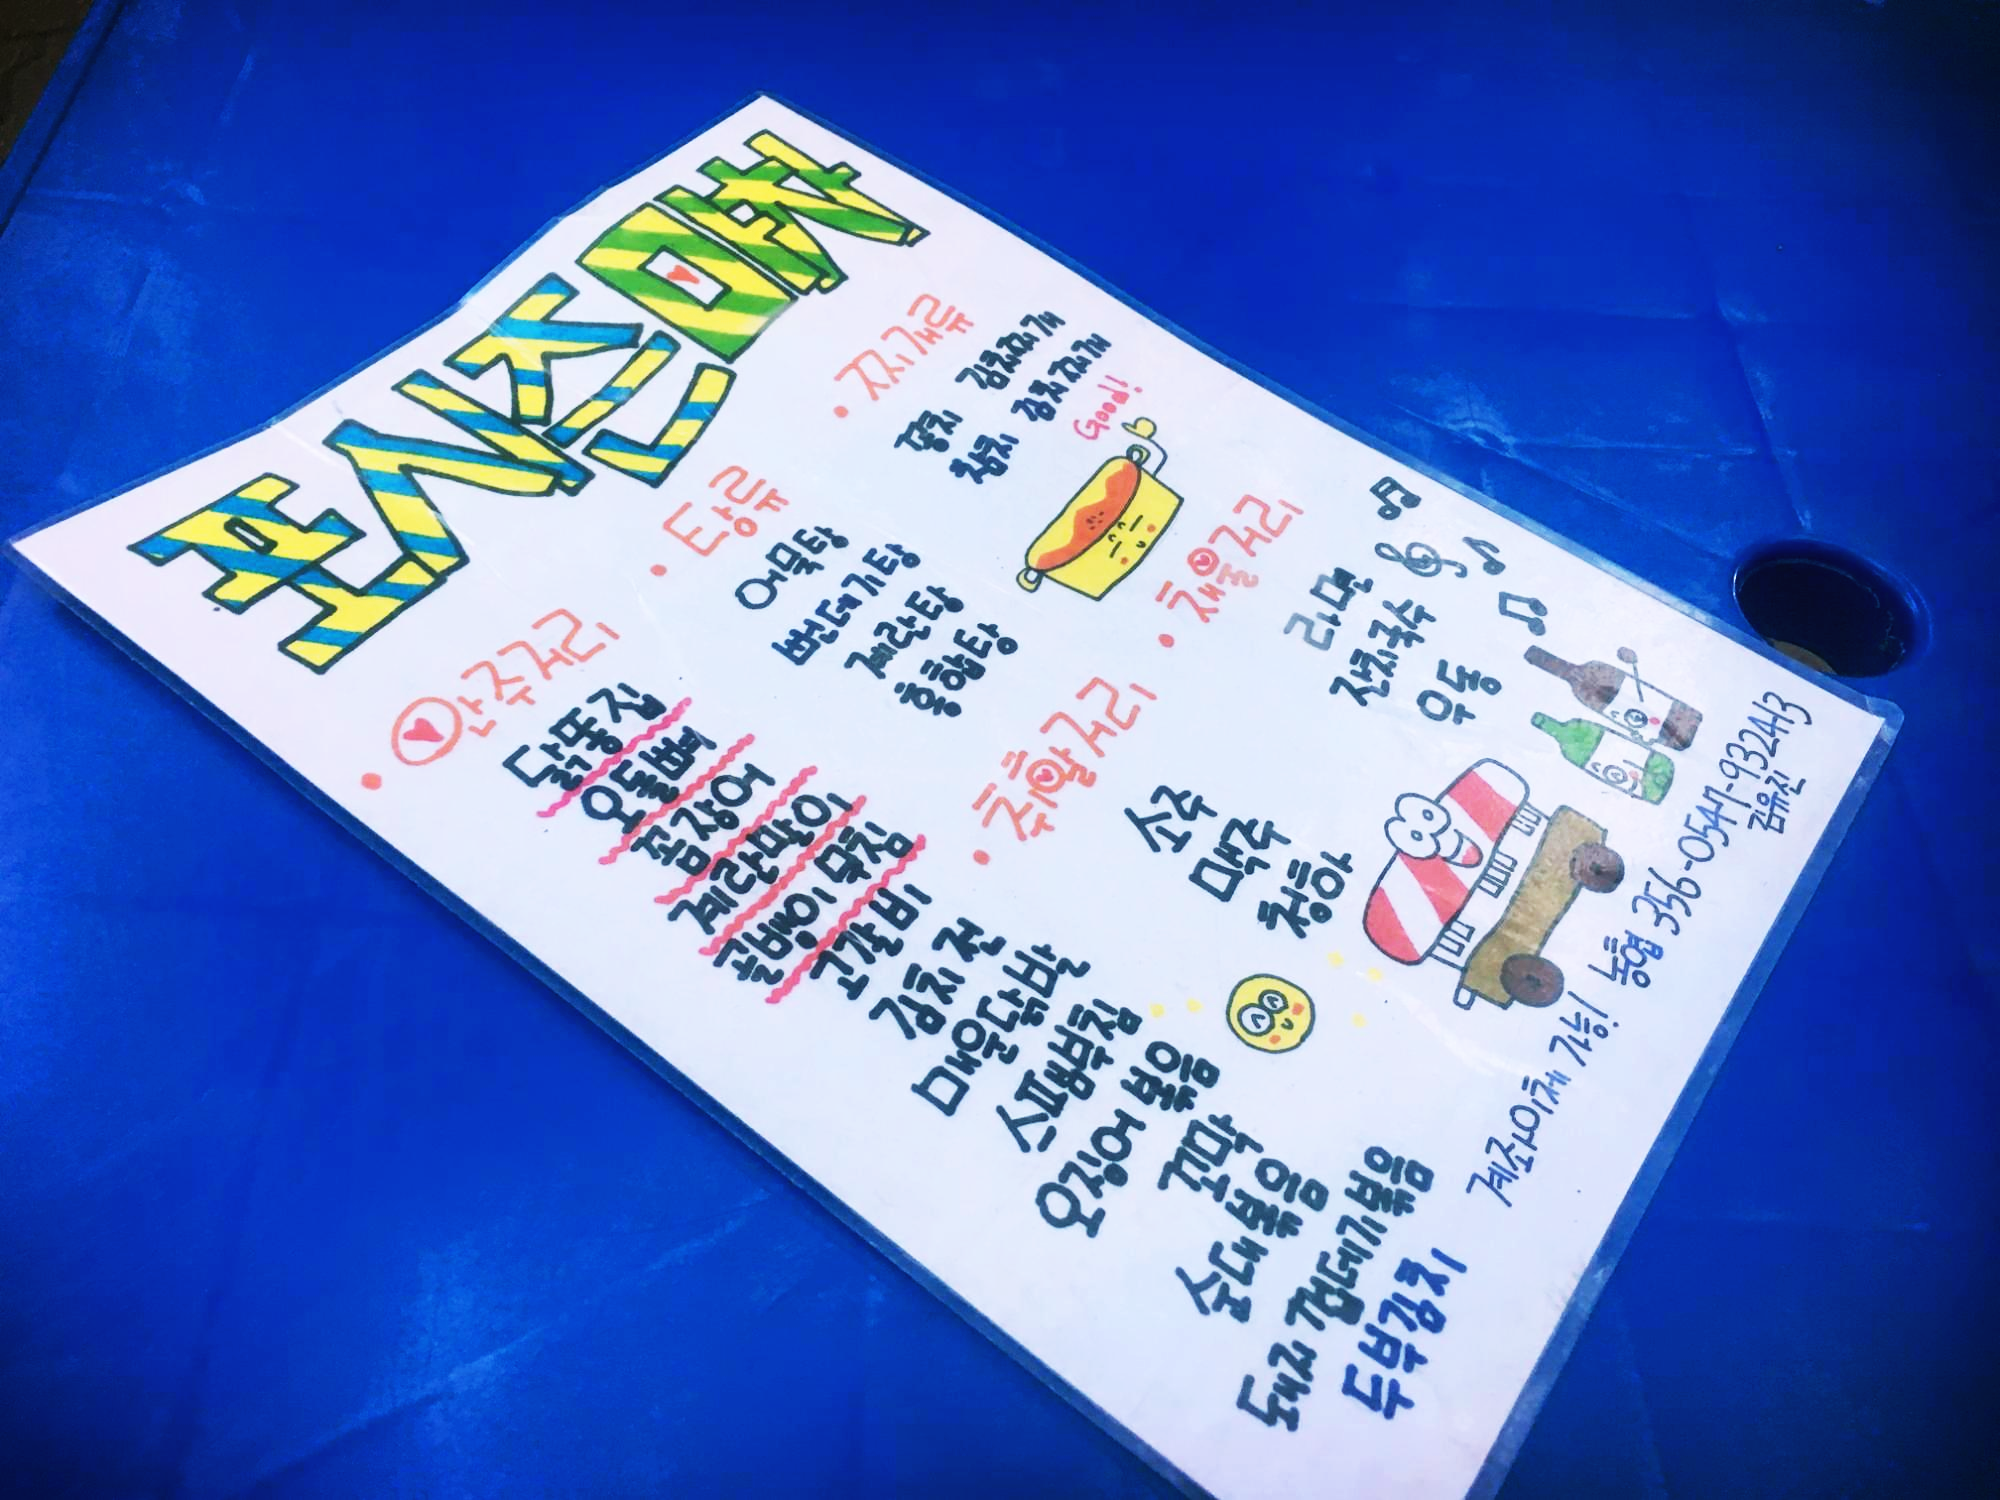 포시즌 맛차
안주거리
닭똥집
오돌뼈
꼼장어
계란말이
골뱅이 무침
고갈비
김치 전
매운닭발
스팸부침
오징어 볶음
꼬막
순대볶음
돼지껍데기볶음
두부김치
탕류
어묵탕
뻔데기탕
계란탕
홍합탕
찌개류
꽁치 김치찌개
참치 김치찌개
Good!
취할거리
소주
맥주
청하
채울거리
라면
잔치국수
우동
계좌이체 가능! 농협 356-0547-932413
김유진